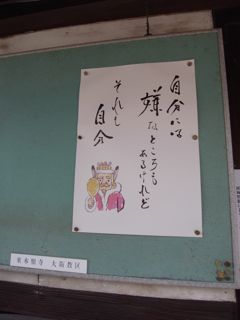 自分には
嫌なところも
あるけれど
それも
自分
東本願寺 大阪教区